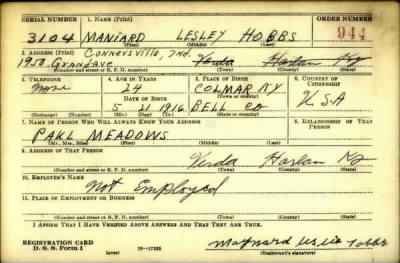 SERIAL NUMBER 1. NAME (Print) ORDER NUMBER
3104 MANYARD LESLEY HOBBS 944
(First) (Middle) (Last)
2. ADDRESS (Print) Connersville, Ind.
1950 Grand ave Verda Harlan Ky
(Number and street or R. F. D. number) (Town) (County) (State)
3. TELEPHONE 4. AGE IN YEARS 5. PLACE OF BIRTH 6. COUNTRY OF CITIZENSHIP
None 24 COLMAR KY
DATE OF BIRTH (Town or county)
5 21 1916 BELL CO USA
(Exchange) (Number) (Mo.) (Day) (Yr.) (State or country)
7. NAME OF PERSON WHO WILL ALWAYS KNOW YOUR ADDRESS 8. RELATIONSHIP OF THAT PERSON
PARL MEADOWS
(Mr., Mrs., Miss) (First) (Middle) (Last)
9. ADDRESS OF THAT PERSON
Verda Harlan Ky
(Number and street or R. F. D. number) (Town) (County) (State)
10. EMPLOYER'S NAME
Not Employed
11. PLACE OF EMPLOYMENT OR BUSINESS
(Number and street or R. F. D. number) (Town) (County) (State)
I AFFIRM THAT I HAVE VERIFIED ABOVE ANSWERS AND THAT THEY ARE TRUE.
REGISTRATION CARD
D. S. S. Form 1 (over) 16—17105 Maynard Hobbs
(Registrant's signature)